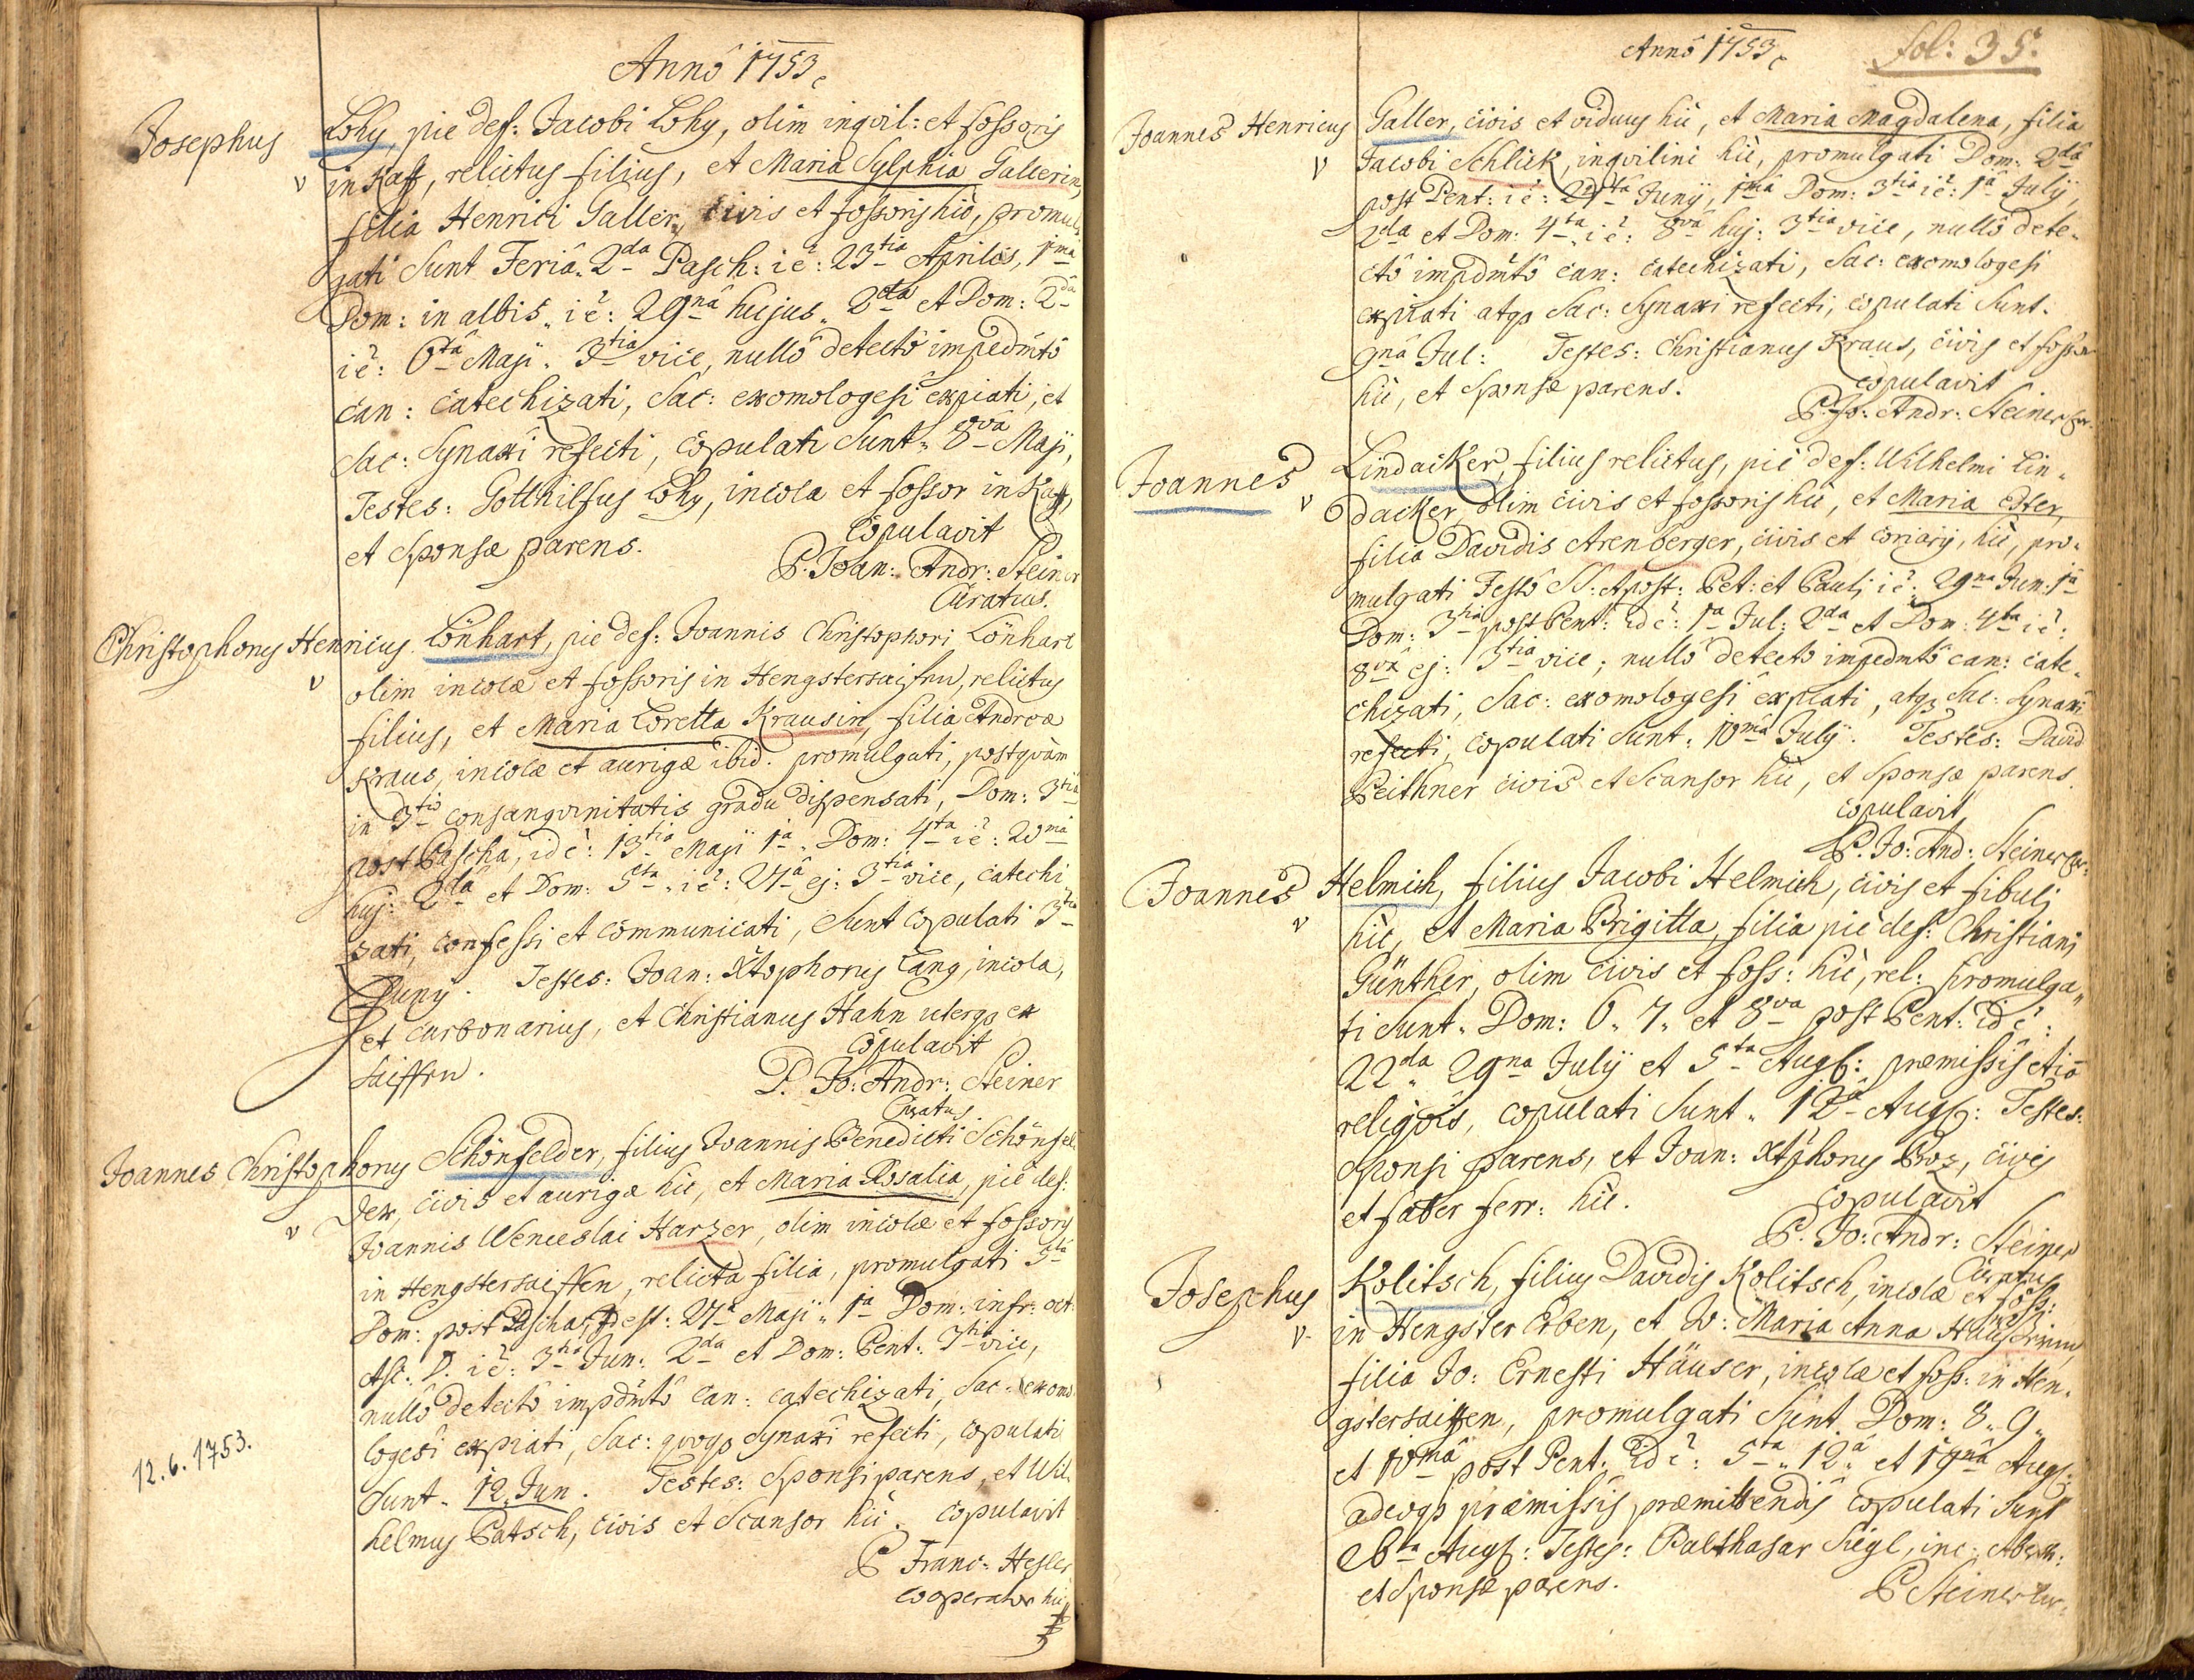 Anno 1753
Josephus Lohy, pie def: Jacobi Lohy, olim inqvil: et fossoris
v in Kaff, relictus filius, et Maria Sylphia Gallerin,
filia Henrici Galler, civis et fossoris hic, promul
gati Sunt Feria 2da Pasch: i e: 23tia Aprilis, 1ma
Dom: in albis, i e: 29na hujus 2da et Dom: 2da
i e: 6ta Maji 3tia vice, nullo detecto impedmto
can: catechizati, Sac: exomologesi expiati, et
Sac: Synaxi refecti, copulati Sunt 8va Maji,
Testes: Gotthilfus Lohy, incola et fossor in Kaff,
et Sponsæ parens. Copulavit
P. Joan: Andr: Steiner
Curatus.
Christophorus Henricus Lönhart, pie def: Joannis Christophori Lönhart
v olim incolæ et fossoris in Hengstersaiffen, relictus
filius, et Maria Loretta Krausin, filia Andreæ
Kraus, incolæ et aurigæ ibid. promulgati, postqvam
in 3tio consangvinitatis gradu dispensati, Dom: 3tia
post Pascha, id e: 13tia Maji 1a Dom: 4ta i e: 20ma
huj: 2da et Dom: 5ta i e: 27a ej: 3tia vice, catechi
zati, confessi et communicati, Sunt copulati 3tia
Juny. Testes: Joan: Xtophorus Lang, incola,
et carbonarius, et Christianus Hahn uterqz ex
Saiffen. Copulavit
P. Jo: Andr: Steiner
Curatus
Joannes Christophorus Schönfelder, filius Joannis Benedicti Schönfel
v der, civis et aurigæ hic, et Maria Rosalia, pie def:
Joannis Wenceslai Harzer, olim incolæ et fossoris
in Hengstersaiffen, relicta filia, promulgati 5ta
Dom: post Pascha, id est: 27a Maji 1a Dom: infr: oct:
Asc: D. i e: 3tia Jun: 2da et Dom: Pent: 3tia vice,
nullo detecto impdmto can: catechizati, Sac: exomo
logesi expiati, Sac: qvoqz Synaxi refecti, copulati
12.6.1753.
Sunt 12. Jun. Testes: Sponsi parens, et Wil
helmus Patsch, civis et Scansor hic. Copulavit
P Franc: Hesler
Cooperator hic
Anno 1753
fol: 35.
Joannes Henricus Galler, civis et viduus hic, et Maria Magdalena, filia
v Jacobi Schlick, inqvilini hic, promulgati Dom: 2da
post Pent: i e: 24ta Junij, 1ma Dom: 3tia i e: 1a July,
2da et Dom: 4ta i e: 8va huj: 3tia vice, nullo dete-
cto impdmto can: catechizati, Sac: exomologesi
expiati atqz Sac: Synaxi refecti, copulati Sunt.
9na Jul: Testes: Christianus Kraus, civis et fossor
hic, et Sponsæ parens. copulavit
P. Jo: Andr: Steiner Cur.
Joannes Lindacker, filius relictus, pie def: Wilhelmi Lin-
v dacker, olim civis et fossoris hic, et Maria Ester,
filia Davidis Arenberger, civis et coriarij, hic, pro-
mulgati Festo SS: Apost: Pet: et Pauli i e: 29na Jun: 1a
Dom: 3tia post Pent: id e: 1a Jul: 2da et Dom: 4ta i e:
8va ej: 3tia vice; nullo detecto impedmto can: cate-
chizati, Sac: exomologesi expiati, atqz Sac: Synaxi
refecti, copulati Sunt 10ma July. Testes: David
Peithner civis et Scansor hic, et Sponsæ parens
copulavit
P. Jo: And: Steiner Cur.
Joannes Helmich, filius Jacobi Helmich, civis et fibulj
v hic, et Maria Brigitta, filia pie def: Christiani
Günther, olim civis et foss: hic, rel: promulga„
ti Sunt. Dom: 6. 7. et 8va post Pent: id e:
22da 29na July et 5ta Aug: præmissis etia
religois, copulati Sunt 12a Aug: Testes:
Sponsi parens, et Joan: Xtphorus Poz, civis
et faber ferr: hic. Copulavit
P. Jo: Andr: Steiner
Curatus
Josephus Kolitsch, filius Davidis Kolitsch, incolæ et foss:
v in Hengster Erben, et V: Maria Anna Hauserinin
filia Jo: Ernesti Häuser, incolæ et foss: in Hen-
gstersaiffen, promulgati Sunt Dom: 8. 9.
et 10ma post Pent. id e: 5ta 12a et 19na Aug:
adeoqz præmissis præmittendis copulati Sunt
Aug: Testes: Balthasar Siegl, inc:
et Sponsæ parens. P Steiner Cur.